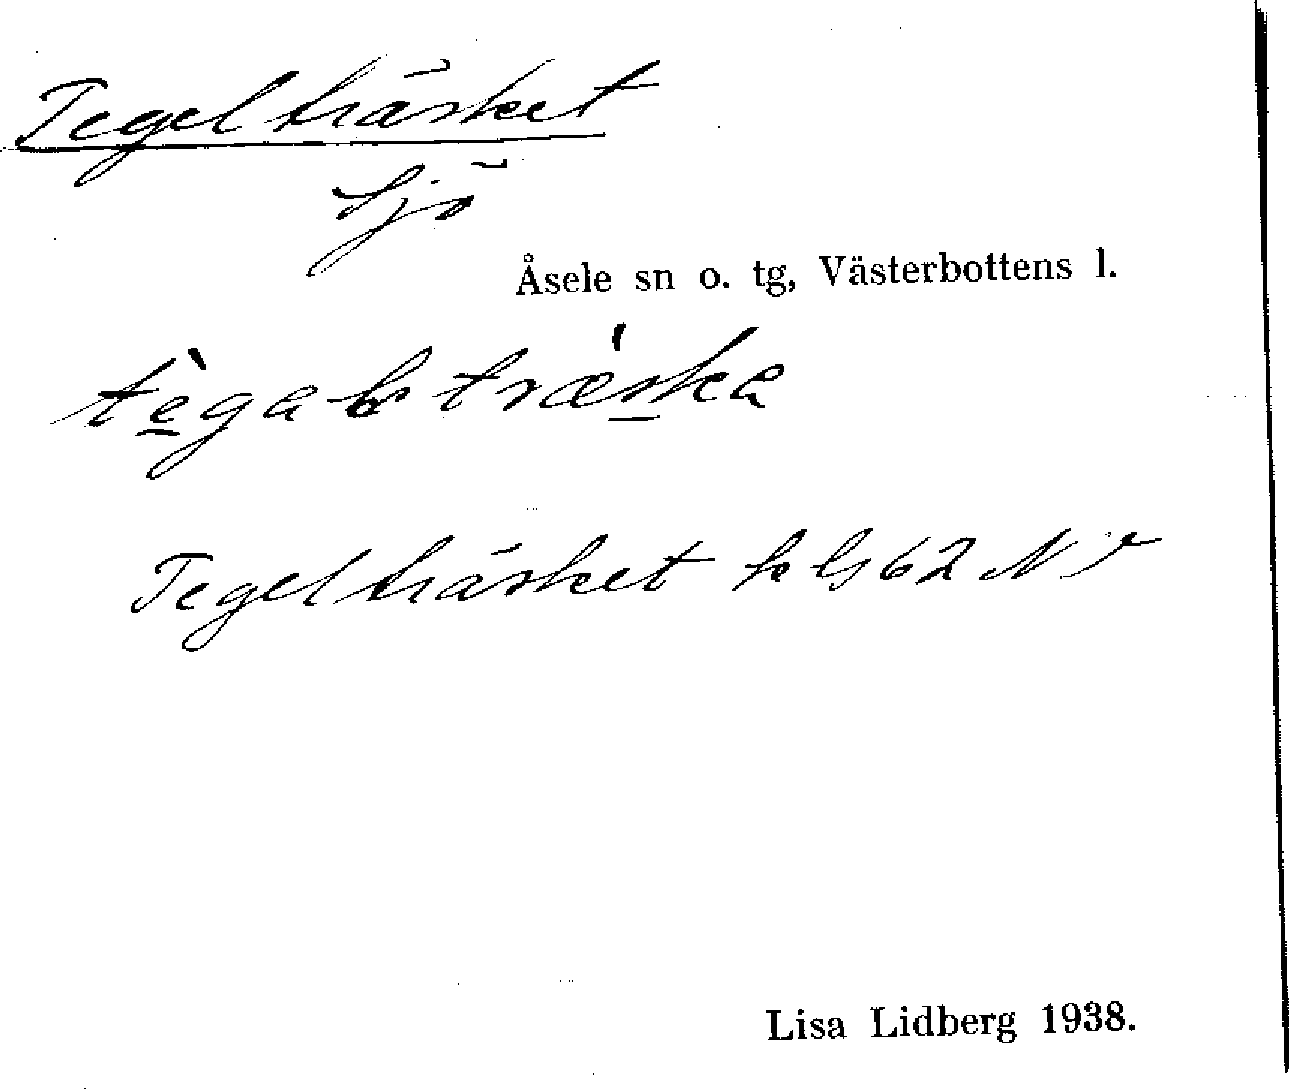 Tegelträsket
Sjö
Åsele sn o. tg, Västerbottens l.
tègaltræ̀ska
Tegelträsket k bl 62 NV
Lisa Lidberg 1938.